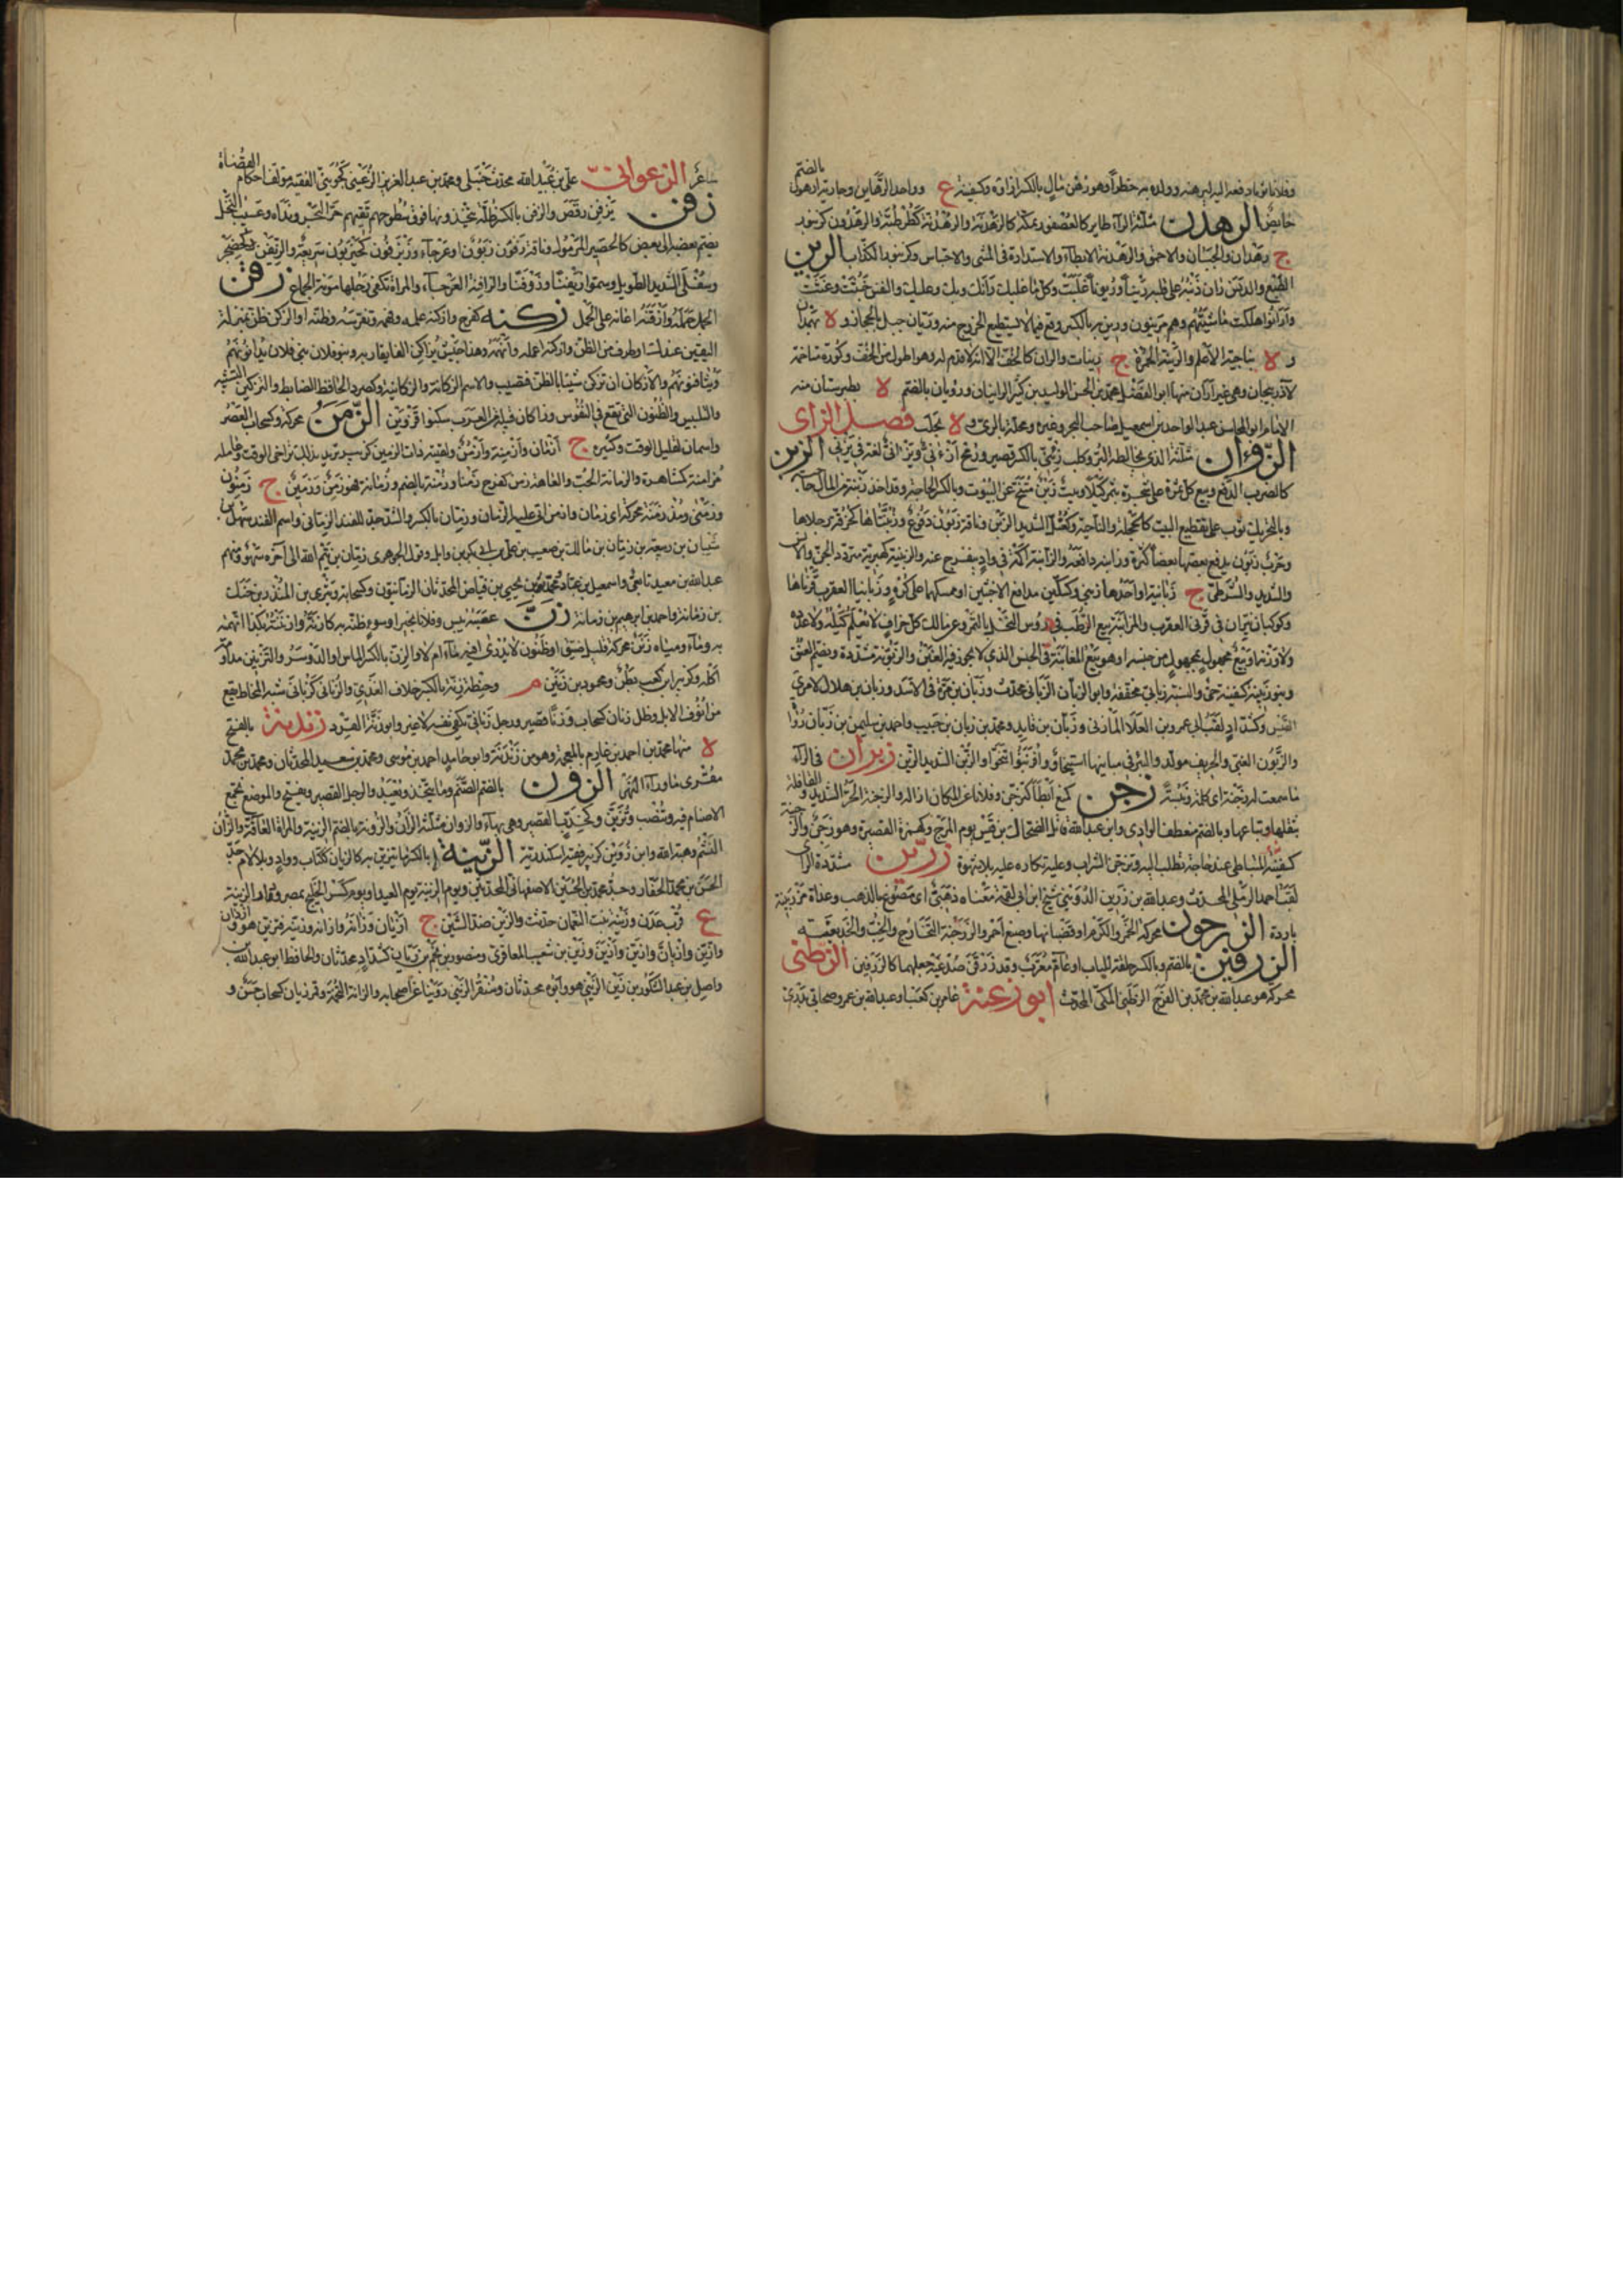 بالضم
وفلانا بثوبه دفعه اليه ليرهنه وولده به خطرا وهو رهن مال بالكسر ازاؤه وكفينة ع وواحد الرهاين وجارية ارهون
حايض الرهدن مثلثة الراء طاير كالعصفور بمكة كالرهدنة والرهدنة كطرطبة والرهدون كزنبور
ج رهادن والجبان والاحمق والرهدنة الابطاء والاستدارة في المشى والاحتباس وكزنبور الكذاب الرين
الطبع والدنس ران ذنبه على قلبه رينا وريونا غلب وكل ما غلبك رانك وبك وعليك والنفس خبثت وغثت
وارانوا هلكت ماشيتهم وهم مرينون ورين به بالكسر وقع فيما لا يستطيع الخروج منه وريان جبل بالحجاز و ة بهمدان
و ة بناحية الاعلم والرينة الخمرة ج رينات والران كالخف الا انه لا قدم له وهو اطول من الخف وكورة متاخمة
لاذربيجان وهى غير اران منها ابو الفضل احمد بن الحسن الوليد بن كثير الرانيان ورويان بالضم ة بطبرستان منه
الامام ابو المحاسن عبد الواحد بن اسمعيل صاحب البحر وغيره ومحلة بالرى و ة بحلب فصل الزاى
الزؤان مثلثة الذى يخالط البر وكلب زئنى بالكسر قصير ورمح ازءنى ويزءنى لغة في يزنى الزبن
كالضرب الدفع وبيع كل ثمر على شجره بتمر كيلا وبيت زبن متنح عن البيوت وبالكسر الحاجة وقد اخذ زبنه من المال حاجته
وبالتحريك ثوب على تقطيع البيت كالحجلة والناحية وكعتل الشديد الزبن وناقة زبون دفوع وزبنتاها كحزقة رجلاها
وحرب زبون يدفع بعضها بعضا كثرة وزابنه دافعه والزابنة اكمة في واد ينعرج عنها والزبنية كهبرية متمرد الجن والانس
والشديد والشرطى ج زبانية او احدها زبنى وكسكين مدافع الاخبثين او ممسكهما على كره وزبانيا العقرب قرناها
وكوكبان نيران في قرنى العقرب والمزابنة بيع الرطب في رؤس النخل بالتمر وعن مالك كل جزاف لا يعلم كيله ولا عدده
ولا وزنه او بيع مجهول بمجهول من جنسه او هو بيع المغابنة في الجنس الذى لا يجوز فيه الغبن والزبونة مشددة وبضم العنق
وبنو زبينة كسفينة حى والنسبة زبانى مخففة وابو الزبان الزبانى محدث وزبان بن مرة في الازد وزبان بن هلال لامرئ
القيس وكشداد لقب ابي عمرو بن العلاء المازنى وزبان بن فايد ومحمد بن زبان بن حبيب واحمد بن سليمن بن زبان رووا
والزبون الغبى والحريف مولد والبئر في مبناتها استيخاؤ وازبنوا تنحوا والزبن الشديد الزبن زبران في الراء
ما سمعت له زجنة اى كلمة ونبسة زحن كمنع ابطا كتزحن وفلانا عن المكان ازاله والزحنة الحر الشديد والقافلة
بثقلها وتباعها وبالضم منعطف الوادى وابن عبد الله قاتل الضحاك بن قيس يوم المرج وكهمزة القصيرة وهو زحن
لقب احمد الرملى المحدث وعبد الله بن زرين الدوينى شيخ ابن ابي لقمة
باردة الزرجون محركة الخمر والكرم او قضبانها وصبغ احمر والزرجنة التخارج والخب والخديعة
الزرفين بالضم وبالكسر حلقة للباب او عام معرب وقد زرفن صدغيه جعلهما كالزرفين الزطنى
محركة هو عبد الله بن محمد بن الفرج الزطنى المكى المحدث ابو زعنة عامر بن كعب او عبد الله بن عمرو صحابي بدرى
شاعر الزعوانى على بن عبيد الله محدث حنبلى ومحمد بن عبد العزيز الزغينى كجوينى الفقيه مولف احكام القضاة
زفن يزفن رقص والزفن بالكسر ظلة يتخذونها فوق سطوحهم تقيهم حر البحر ونداه وعسيب النخل
يضم بعضه الى بعض كالحصير المرمول وناقة زفون زبون او عرجاء وزيزفون كحيزبون سريعة والزيفن كحضجر
وسفل الشديد الطويل وسموا زيفنا وزوفنا والزافنة العرجاء والمراة تكفى رجلها مؤنة الجماع زقن
الحمل حمله وازقنه اعانه على الحمل زكنه كفرح وازكنه علمه وفهمه وتفرسه وظنه او الزكن ظن بمنزلة
اليقين عندك او طرف من الظن وازكنه اعلمه وافهمه وهذا جيش يزاكن الفا يقاربه وبنو فلان بنى فلان يدانونهم
ويثافنونهم والازكان ان تزكن شيئا بالظن فتصيب والاسم الزكانة والزكانية وكصرد الحافظ الضابط والتزكين التشبيه
والتلبيس والظنون التى تقع في النفوس وزاكان قبيلة من العرب سكنوا قزوين الزمن محركة وكسحاب العصر
واسمان لقليل الوقت وكثيره ج ازمان وازمنة وازمن ولقيته ذات الزمين كزبير تريد بذلك تراخى الوقت وعامله
مزامنة كمشاهرة والزمانة الحب والعاهة زمن كفرح زمنا وزمنة بالضم وزمانة فهو زمن وزمين ج زمنون
وزمنى ومذ زمنة محركة اى زمان وازمن اتى عليه الزمان وزمان بالكسر والشد جد للفند الزمانى واسم الفند شهل بن
شيبان بن ربيعة بن زمان بن مالك بن صعب بن على بن بكر بن وايل وقول الجوهرى زمان بن تيم الله الى آخره سهو ومنهم
عبد الله بن معبد تابعى واسمعيل بن عباد ومحمد بن يحيى بن فياض المحدثان الزمانيون
بن زمانة واحمد بن ابرهيم بن زمانة زن عصبه يبس وفلانا بخير او سوء ظنه به كازنه وازننته بكذا اتهمته
به وماء ومياه زنن محركة قليل ضيق او ظنون لا يدرى افيه ماء ام لا والزن بالكسر الماش او الدوسر والتزنين مداومة
اكله وكزبير ابن كعب بطن ومحمود بن زنين م وحنطة زنة بالكسر خلاف العذى والزنانى كزبانى شبه المخاط يقع
من انوف الابل وظل زنان كسحاب وزناء قصير ورجل زنانى يكفى نفسه لا غير وابو زنة القرد زندنة بالفتح
ة منها محمد بن احمد بن غارم بالمعجمة وهو من زندنة وابو حامد احمد بن موسى ومحمد بن سعيد المحدثان ومحمد بن محمد
مقرى ماوراء النهر الزون بالضم الصنم وما يتخذ ويعبد والرجل القصير ويفتح والموضع تجمع
الاصنام فيه وتنصب وتزين وكخدب القصير وهى بهاء والزوان مثلثة الزؤان والزونة بالضم الزينة والمراة العاقلة والزان
البشم وهبة الله وابن زوين كزبير فقيه اسكندرية الزينة بالكسر ما يتزين به كالزيان ككتاب وواد وبلا لام جد
الحسن بن محمد الحفار وجد محمد بن الحسين الاصفهانى المحدثين ويوم الزينة يوم العيد ويوم كسر الخليج بمصر ودار الزينة
ع قرب عدن وزينة بنت النعمان حدثت والزين ضد الشين ج ازيان وزانه وازانه وزينه فتزين هو وازدان
وازين وازيان وازين وازين وزين بن شعيب المعافرى ومنصور بن نجم بن زيان كشداد محدثان والحافظ ابن عبد الله بن
واصل بن عبد الشكور بن زين الزينى هو وابوه محدثان وسنقر الزينى روينا عن اصحابه والزانة التخمة وقمر زيان كسحاب حسن و